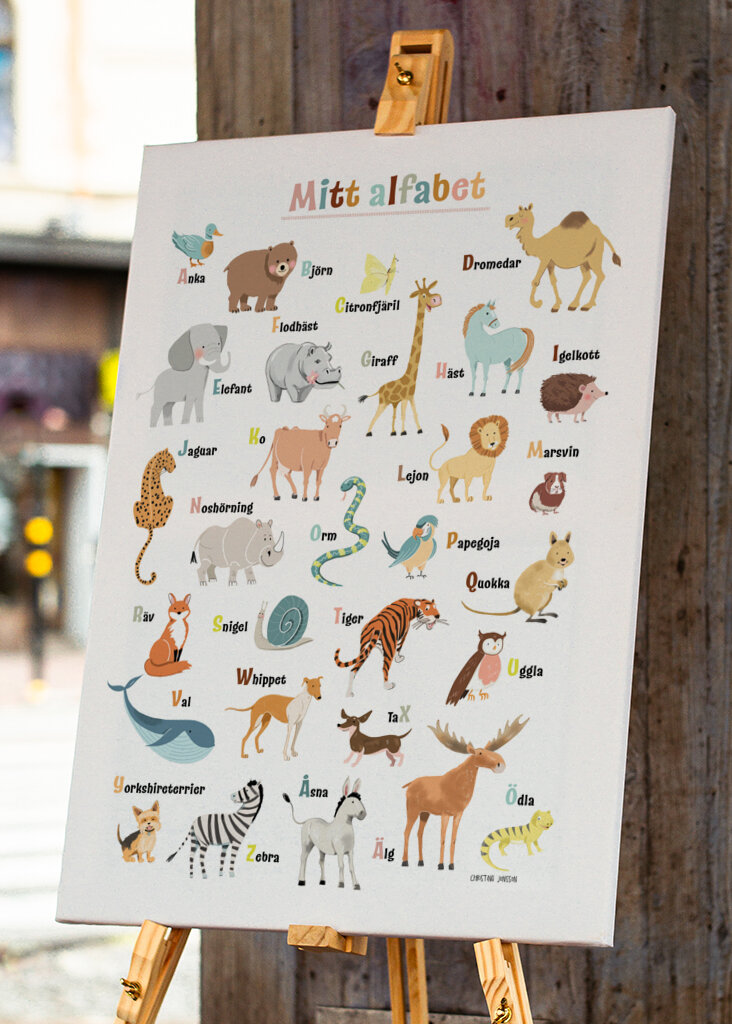 Mitt alfabet
Anka
Björn
Citronfjäril
Dromedar
Elefant
Flodhäst
Giraff
Häst
Igelkott
Jaguar
Ko
Lejon
Marsvin
Noshörning
Orm
Papegoja
Quokka
Räv
Snigel
Tiger
Uggla
Val
Whippet
TaX
Yorkshireterrier
Zebra
Åsna
Älg
Ödla
CHRISTINA JONSSON